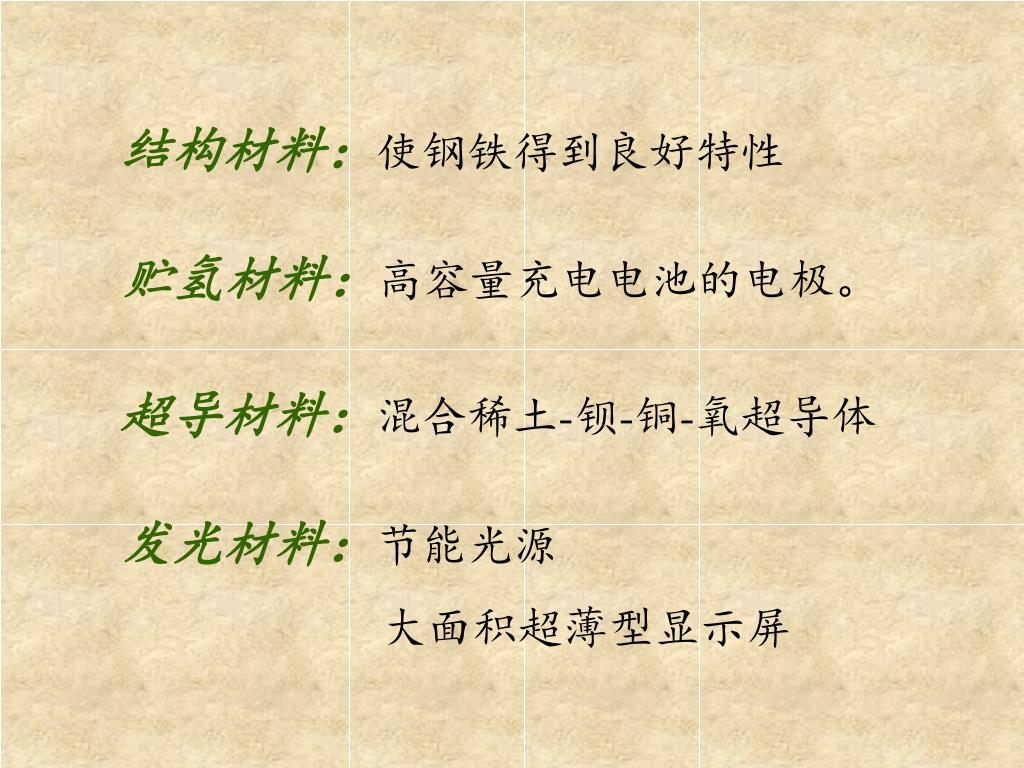 结构材料：使钢铁得到良好特性
贮氢材料：高容量充电电池的电极。
超导材料：混合稀土-钡-铜-氧超导体
发光材料：节能光源
大面积超薄型显示屏